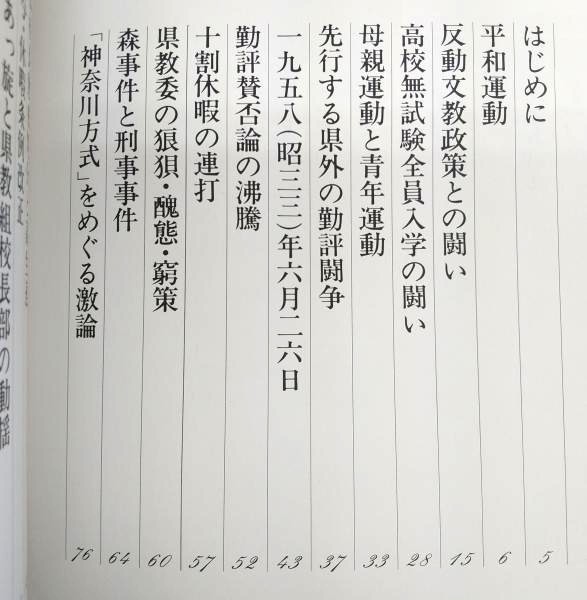 はじめに 5
平和運動 6
反動文教政策との闘い 15
高校無試験全員入学の闘い 28
母親運動と青年運動 33
先行する県外の勤評闘争 37
一九五八(昭三三)年六月二六日 43
勤評賛否論の沸騰 52
十割休暇の連打 57
県教委の狼狽・醜態・窮策 60
森事件と刑事事件 64
「神奈川方式」をめぐる激論 76
・休暇条例改正
あっ旋と県教組校長部の動揺